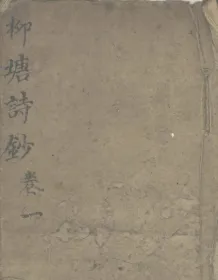 柳塘詩鈔卷一